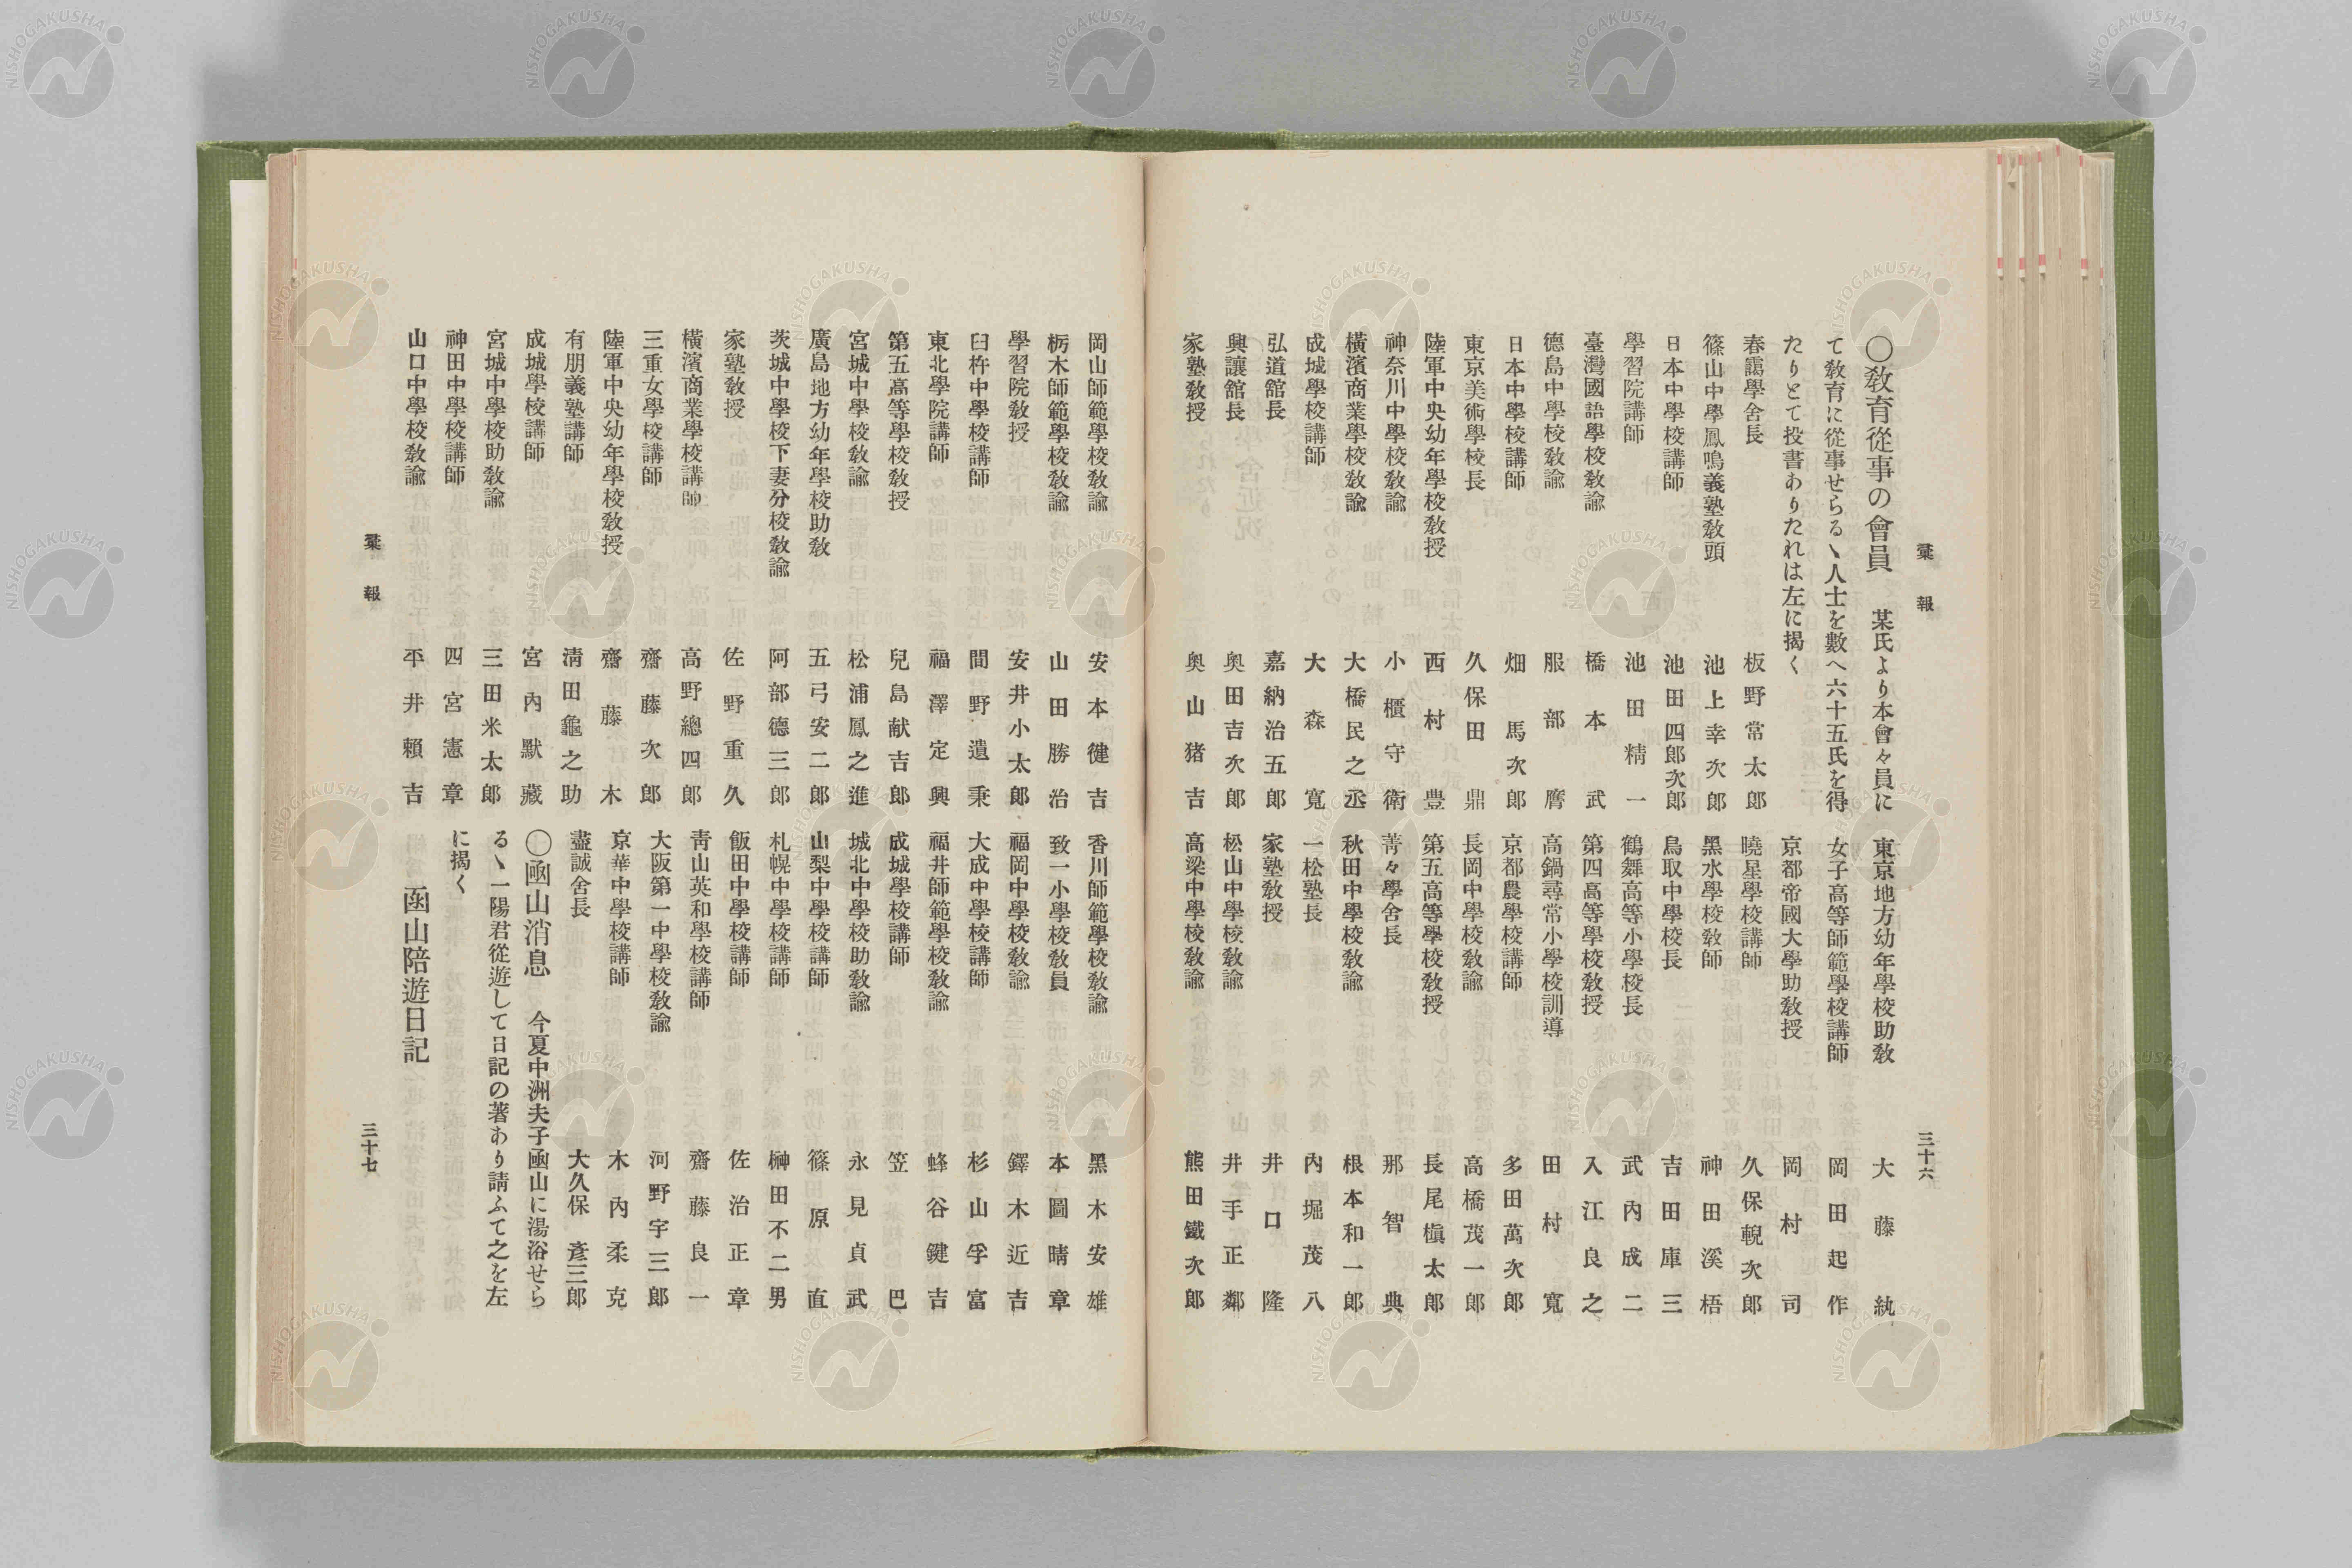 彙報
〇敎育從事の會員　某氏より本會々員に
て敎育に從事せらるゝ人士を數へ六十五氏を得
たりとて投書ありたれは左に揭く
春靄學舍長　板野常太郎
篠山中學鳳鳴義塾敎頭　池上幸次郎
日本中學校講師　池田四郎次郎
學習院講師　池田精一
臺灣國語學校敎諭　橋本武
德島中學校敎諭　服部膺
日本中學校講師　畑馬次郎
東京美術學校長　久保田鼎
陸軍中央幼年學校敎授　西村豊
神奈川中學校敎諭　小櫃守衛
橫濱商業學校敎諭　大橋民之丞
成城學校講師　大森寬
弘道舘長　嘉納治五郎
興讓舘長　奧田吉次郎
家塾敎授　奧山猪吉
東京地方幼年學校助敎　大藤紈
女子高等師範學校講師　岡田起作
京都帝國大學助敎授　岡村司
曉星學校講師　久保輗次郎
黑水學校敎師　神田溪梧
鳥取中學校長　吉田庫三
鶴舞高等小學校長　武內成二
第四高等學校敎授　入江良之
高鍋尋常小學校訓導　田村寬
京都農學校講師　多田萬次郎
長岡中學校敎諭　高橋茂一郎
第五高等學校敎授　長尾槇太郎
菁々學舍長　那智典
秋田中學校敎諭　根本和一郎
一松塾長　內堀茂八
家塾敎授　井口隆
松山中學校敎諭　井手正鄰
高梁中學校敎諭　熊田鐵次郎
三十六
岡山師範學校敎諭　安本健吉
栃木師範學校敎諭　山田勝治
學習院敎授　安井小太郎
臼杵中學校講師　間野遺秉
東北學院講師　福澤定興
第五高等學校敎授　兒島献吉郎
宮城中學校敎諭　松浦鳳之進
廣島地方幼年學校助敎　五弓安二郎
茨城中學校下妻分校敎諭　阿部德三郎
家塾敎授　佐野重久
橫濱商業學校講師　高野總四郎
三重女學校講師　齋藤次郎
陸軍中央幼年學校敎授　齋藤木
有朋義塾講師　淸田龜之助
成城學校講師　宮內默藏
宮城中學校助敎諭　三田米太郎
神田中學校講師　四宮憲章
山口中學校敎諭　平井賴吉
香川師範學校敎諭　黑木安雄
致一小學校敎員　本圖晴章
福岡中學校敎諭　鐸木近吉
大成中學校講師　杉山孚富
福井師範學校敎諭　蜂谷鍵吉
成城學校講師　笠巴
城北中學校助敎諭　永見貞武
山梨中學校講師　篠原直
札幌中學校講師　榊田不二男
飯田中學校講師　佐治正章
靑山英和學校講師　齋藤良一
大阪第一中學校敎諭　河野宇三郎
京華中學校講師　木內柔克
盡誠舍長　大久保彥三郎
〇凾山消息　今夏中洲夫子凾山に湯浴せら
るゝ一陽君從遊して日記の著あり請ふて之を左
に揭く
函山陪遊日記
彙報
三十七